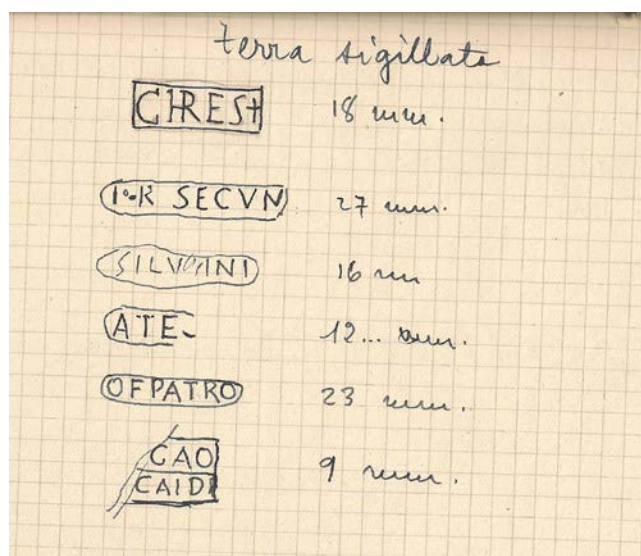 terra sigillata
CHRESt 18 mm.
SECVN 27 mm.
SILVANI 16 mm
ATE 12... mm.
OFPATRO 23 mm.
CAO
CAIDI 9 mm.